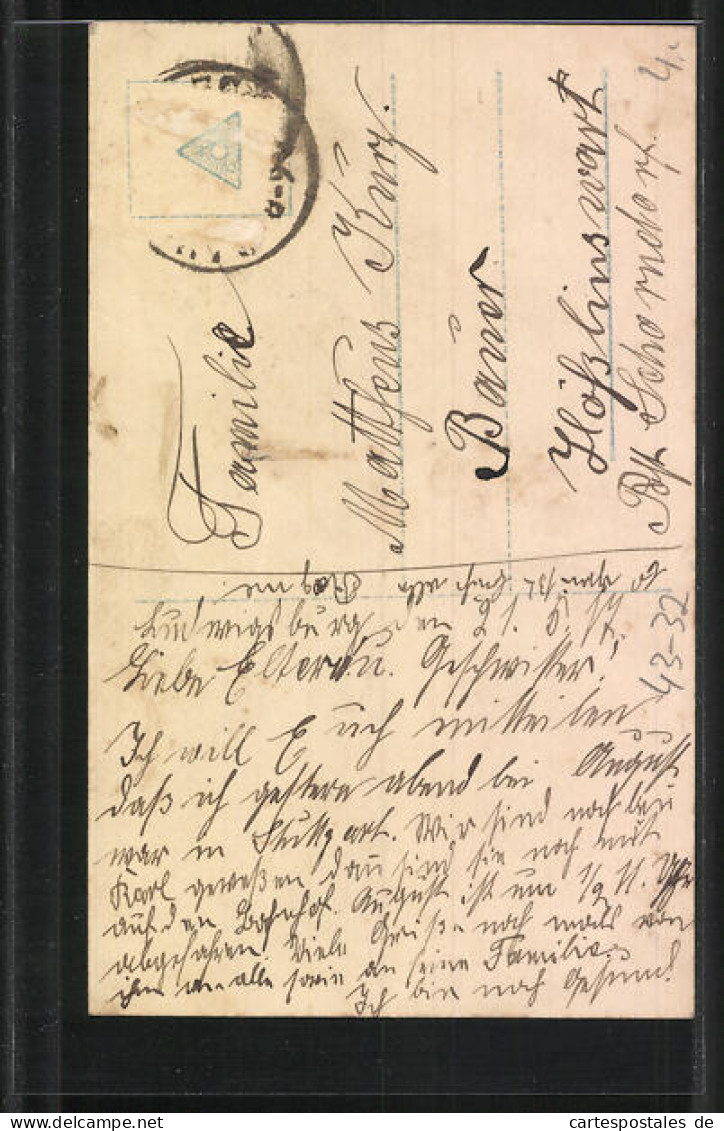 Familie
Mattheus Kurz.
Bauer
Hößlinswart
Post Schorndorf.
4.-
43-32
Ludwigsburg den 21. 5. 17.
Liebe Eltern u. Geschwister!
Ich will Euch mitteilen
daß ich gestern abend bei August
war in Stuttgart. Wir sind noch bei
Karl geweßen dan sind sie noch mit
auf den Bahnhof. August ist um 1/2 11. Uhr
abgefahren. Viele Grüße noch mals von
ihm an alle sowie an seine Familie.
Ich bin noch Gesund!
cartespostales.de